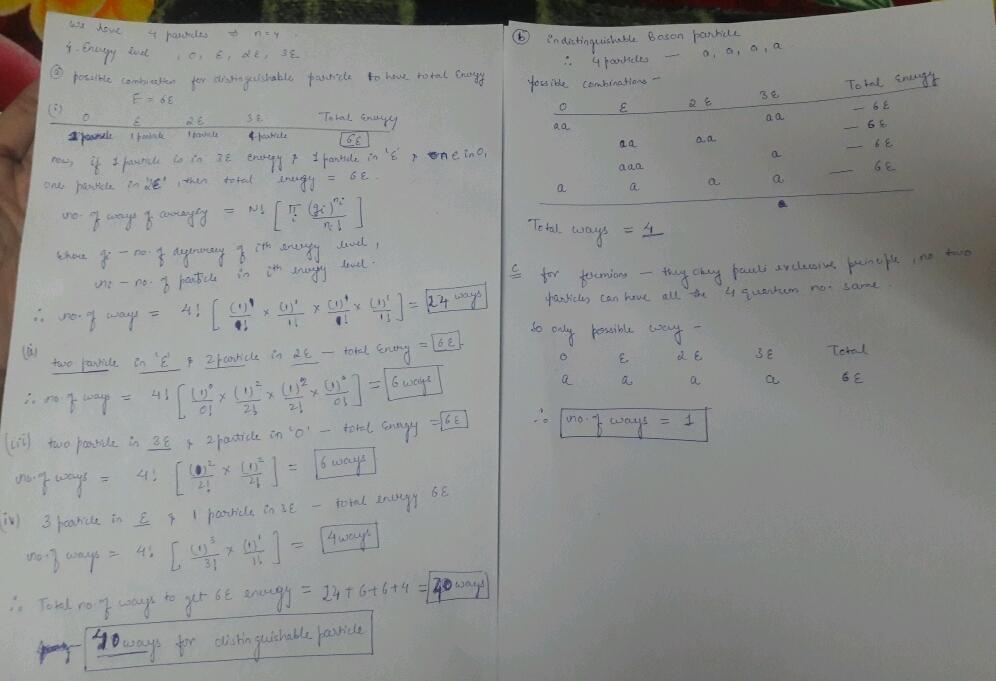 We have 4 particles ⇒ n=4.
4-Energy level, 0, ε, 2ε, 3ε
(a) possible combination for distinguishable particle to have total Energy
E = 6ε
(i) 0 ε 2ε 3ε Total Energy
1 particle 1 particle 1 particle 1 particle 6ε
now, if 1 particle is in 3ε energy & 1 particle in 'ε' & one in 0,
one particle in '2ε', then total energy = 6ε.
no. of ways of arranging = N! [ π_i (gi)^ni / ni! ]
where gi – no. of degeneracy of ith energy level,
ni – no. of particle in ith energy level.
∴ no. of ways = 4! [ (1)^1/1! × (1)^1/1! × (1)^1/1! × (1)^1/1! ] = 24 ways
(ii) two particle in 'ε' & 2 particle in 2ε – total Energy = 6ε.
∴ no. of ways = 4! [ (1)^0/0! × (1)^2/2! × (1)^2/2! × (1)^0/0! ] = 6 ways
(iii) two particle in 3ε & 2 particle in '0' – total Energy = 6ε
no. of ways = 4! [ (1)^2/2! × (1)^2/2! ] = 6 ways
(iv) 3 particle in ε & 1 particle in 3ε – total energy 6ε
no. of ways = 4! [ (1)^3/3! × (1)^1/1! ] = 4 ways
∴ Total no. of ways to get 6ε energy = 24+6+6+4 = 40 ways
40 ways for distinguishable particle
(b) indistinguishable Boson particle
∴ 4 particles — a, a, a, a
possible combinations –
0 ε 2ε 3ε Total Energy
aa aa – 6ε
aa aa – 6ε
aaa a – 6ε
a a a a – 6ε
Total ways = 4
c for fermions – they obey pauli exclusive principle, no two
particles can have all the 4 quantum no. same.
So only possible way –
0 ε 2ε 3ε Total
a a a a 6ε
∴ no. of ways = 1